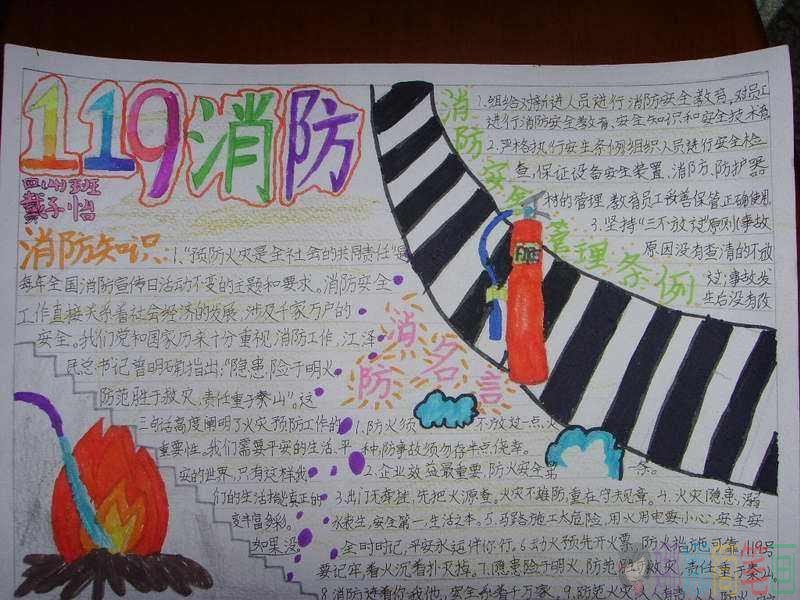 119消防
四(4)班
戴子怡
消防知识:
1."预防火灾是全社会的共同责任"是
每年全国消防宣传日活动不变的主题和要求。消防安全
工作直接关系着社会经济的发展,涉及千家万户的
安全。我们党和国家历来十分重视消防工作,江泽
民总书记曾明确指出:"隐患,险于明火,
防范胜于救灾,责任重于泰山",这
三句话高度阐明了火灾预防工作的
重要性。我们需要平安的生活、平
安的世界,只有这样我
们的生活才能真正的
变丰富多彩。
如果没
消防安全管理条例
1.组给对新进人员进行消防安全教育。对员工
进行消防安全教育、安全知识和安全技术
2.严格执行安全条例组织人员进行安全检
查,保证设备安全装置、消防、防护器
材的管理,教育员工妥善保管正确使用
3.坚持"三不放过"原则(事故
原因没有查清的不放
过;事故发
生后没有改
FIRE
消防名言
1.防火须 不放过一点,火
种,防事故须勿存半点侥幸。
2.企业效益最重要,防火安全第一条。
3.出门无牵挂,先把火源查。火灾不难防,重在守夫规章。4.火灾隐患,
安全第一,生活之本。5.马路施工太危险,用火用电要小心;安全安
全时时记,平安永远伴你行。6.动火预先开火票,防火措施可靠,119号
要记牢,看火沉着扑灭掉。7.隐患险于明火,防范胜于救灾,责任重于泰山。
8.消防连着你我他,安全系着千万家。9.防范火灾人人有责,人人防火